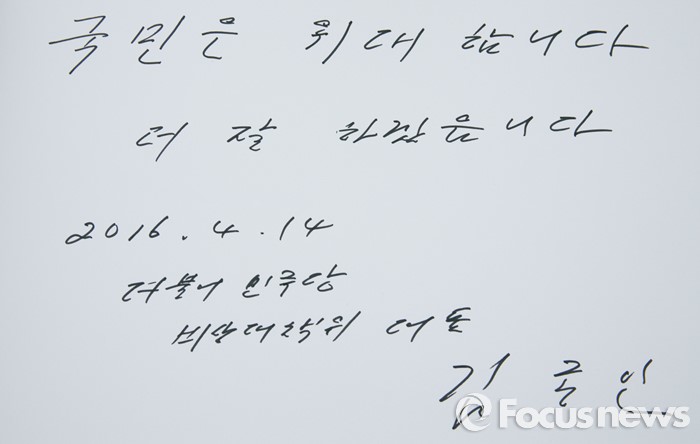 국민은 위대 합니다
더 잘 하겠읍니다
2016. 4. 14
더불어 민주당
비상대책위 대표
김 종 인
Focusnews